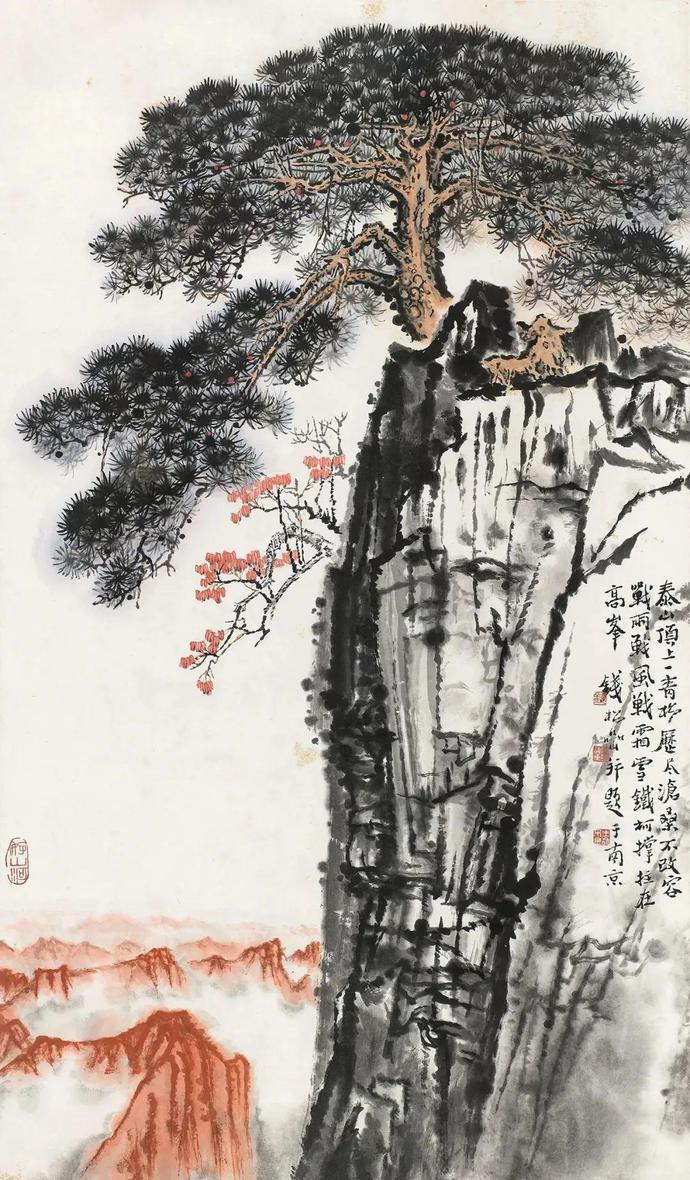 泰山頂上一青松歷尽滄桑不改容
戰雨戰風戰霜雪鐵柯撑拄在
高峯 錢松喦并題于南京
好山河